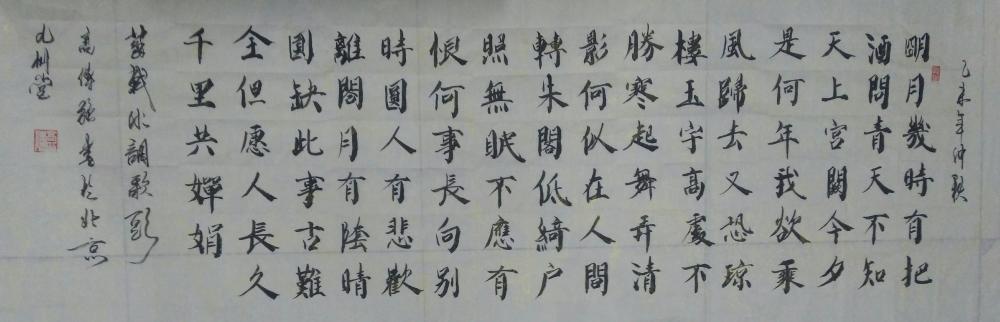 乙未年仲秋
明月幾時有把
酒問青天不知
天上宮闕今夕
是何年我欲乘
風歸去又恐琼
樓玉宇高處不
勝寒起舞弄清
影何似在人間
轉朱閣低綺户
照無眠不應有
恨何事長向别
時圓人有悲歡
離閤月有陰晴
圆缺此事古難
全但愿人長久
千里共嬋娟
蘇軾水調歌頭
高傳強書於北京
九州堂